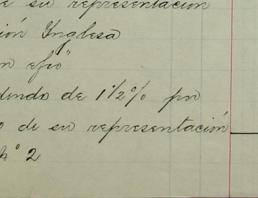 e su representacion
ión Inglesa
n efvo"
idendo de 1 1/2% por
o de su representación
k° 2